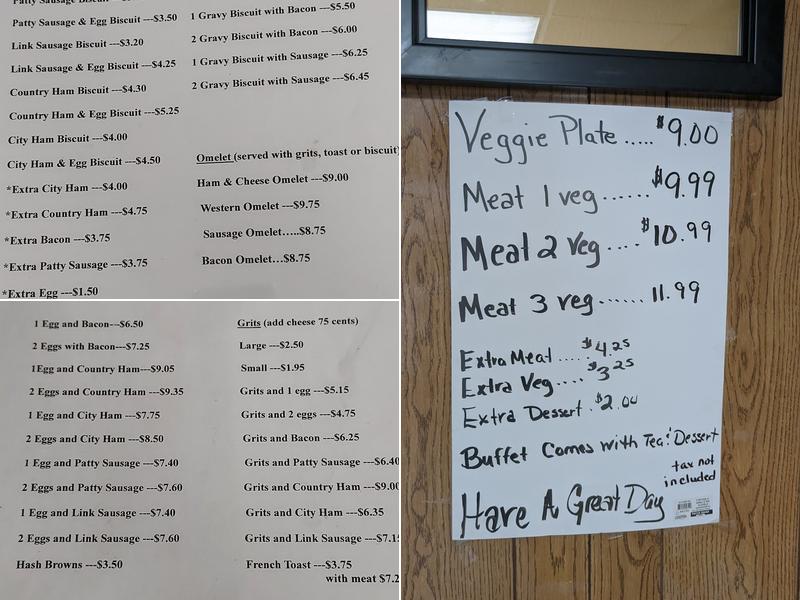 Patty Sausage & Egg Biscuit ---$3.50
Link Sausage Biscuit ---$3.20
Link Sausage & Egg Biscuit ----$4.25
Country Ham Biscuit ---$4.30
Country Ham & Egg Biscuit ---$5.25
City Ham Biscuit ---$4.00
City Ham & Egg Biscuit ---$4.50
*Extra City Ham ---$4.00
*Extra Country Ham ---$4.75
*Extra Bacon ---$3.75
*Extra Patty Sausage ---$3.75
*Extra Egg ---$1.50
1 Gravy Biscuit with Bacon ---$5.50
2 Gravy Biscuit with Bacon ---$6.00
1 Gravy Biscuit with Sausage ---$6.25
2 Gravy Biscuit with Sausage ---$6.45
Omelet (served with grits, toast or biscuit)
Ham & Cheese Omelet ---$9.00
Western Omelet ---$9.75
Sausage Omelet…..$8.75
Bacon Omelet…$8.75
1 Egg and Bacon---$6.50
2 Eggs with Bacon---$7.25
1Egg and Country Ham---$9.05
2 Eggs and Country Ham ---$9.35
1 Egg and City Ham ---$7.75
2 Eggs and City Ham ---$8.50
1 Egg and Patty Sausage ---$7.40
2 Eggs and Patty Sausage ---$7.60
1 Egg and Link Sausage ---$7.40
2 Eggs and Link Sausage ---$7.60
Hash Browns ---$3.50
Grits (add cheese 75 cents)
Large ---$2.50
Small ---$1.95
Grits and 1 egg ---$5.15
Grits and 2 eggs ---$4.75
Grits and Bacon ---$6.25
Grits and Patty Sausage ---$6.40
Grits and Country Ham ---$9.00
Grits and City Ham ---$6.35
Grits and Link Sausage ---$7.1
French Toast ---$3.75
with meat $7.2
Veggie Plate ..... $9.00
Meat 1 veg ...... $9.99
Meat 2 veg .... $10.99
Meat 3 veg ...... 11.99
Extra Meat .... $4.25
Extra Veg .... $3.25
Extra Dessert . $2.00
Buffet Comes with Tea & Dessert
tax not
included
Have A Great Day